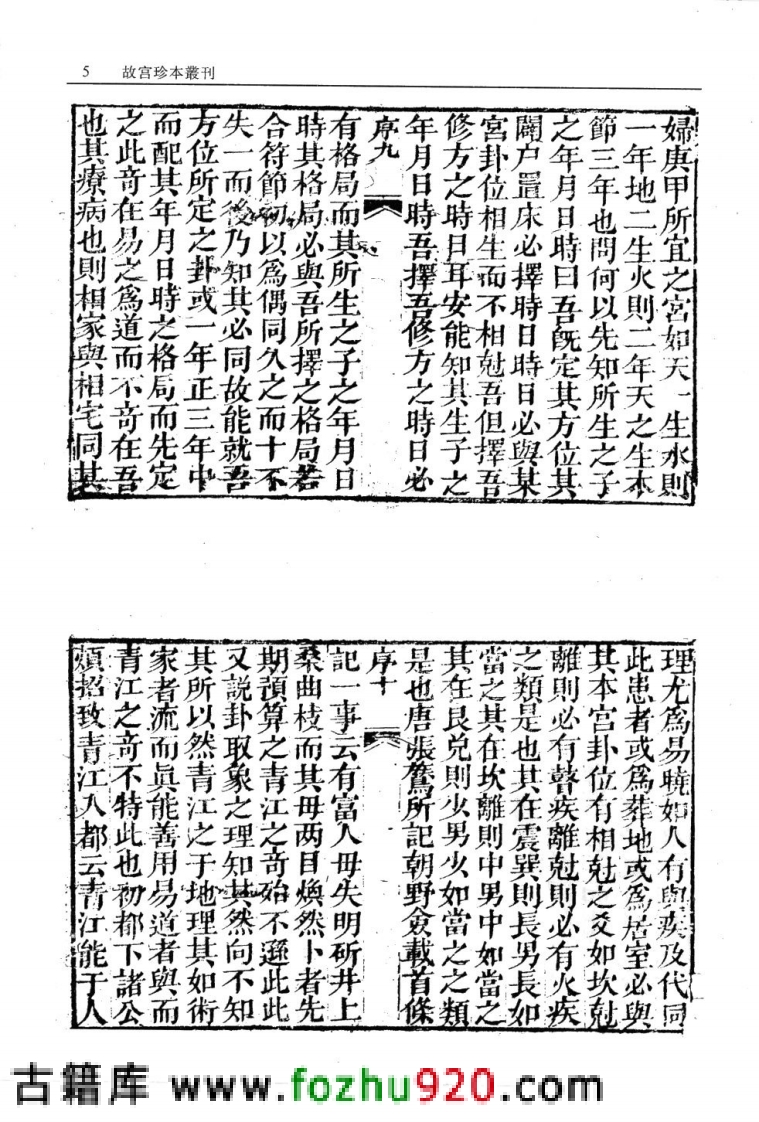 5 故宫珍本叢刊
婦庚甲所宜之宮如天一生水則
一年地二生火則二年天之生木
節三年也問何以先知所生之子
之年月日時曰吾既定其方位其
闢户置床必擇時日時日必與某
宮卦位相生而不相尅吾但擇吾
修方之時日耳安能知其生子之
年月日時吾擇吾修方之時日必
序九
有格局而其所生之子之年月日
時其格局必與吾所擇之格局若
合符節初以爲偶同久之而十不
失一而後乃知其必同故能就吾
方位所定之卦或一年正三年中
而配其年月日時之格局而先定
之此奇在易之爲道而不奇在吾
也其療病也則相家與相宅同其
理尤爲易曉如人有與疾及代同
此患者或爲葬地或爲居室必與
其本宮卦位有相尅之爻如坎尅
離則必有瞽疾離尅則必有火疾
之類是也其在震巽則長男長如
當之其在坎離則中男中如當之
其在艮兑則少男少如當之之類
是也唐張鷟所記朝野僉載首條
序十
記一事云有富人毋失明斫井上
桑曲枝而其毋两目煥然卜者先
期預算之青江之奇殆不遜此此
又説卦取象之理知其然向不知
其所以然青江之于地理其如術
家者流而眞能善用易道者與而
青江之奇不特此也初都下諸公
煩招致青江人都云青江能于人
古籍库 www.fozhu920.com